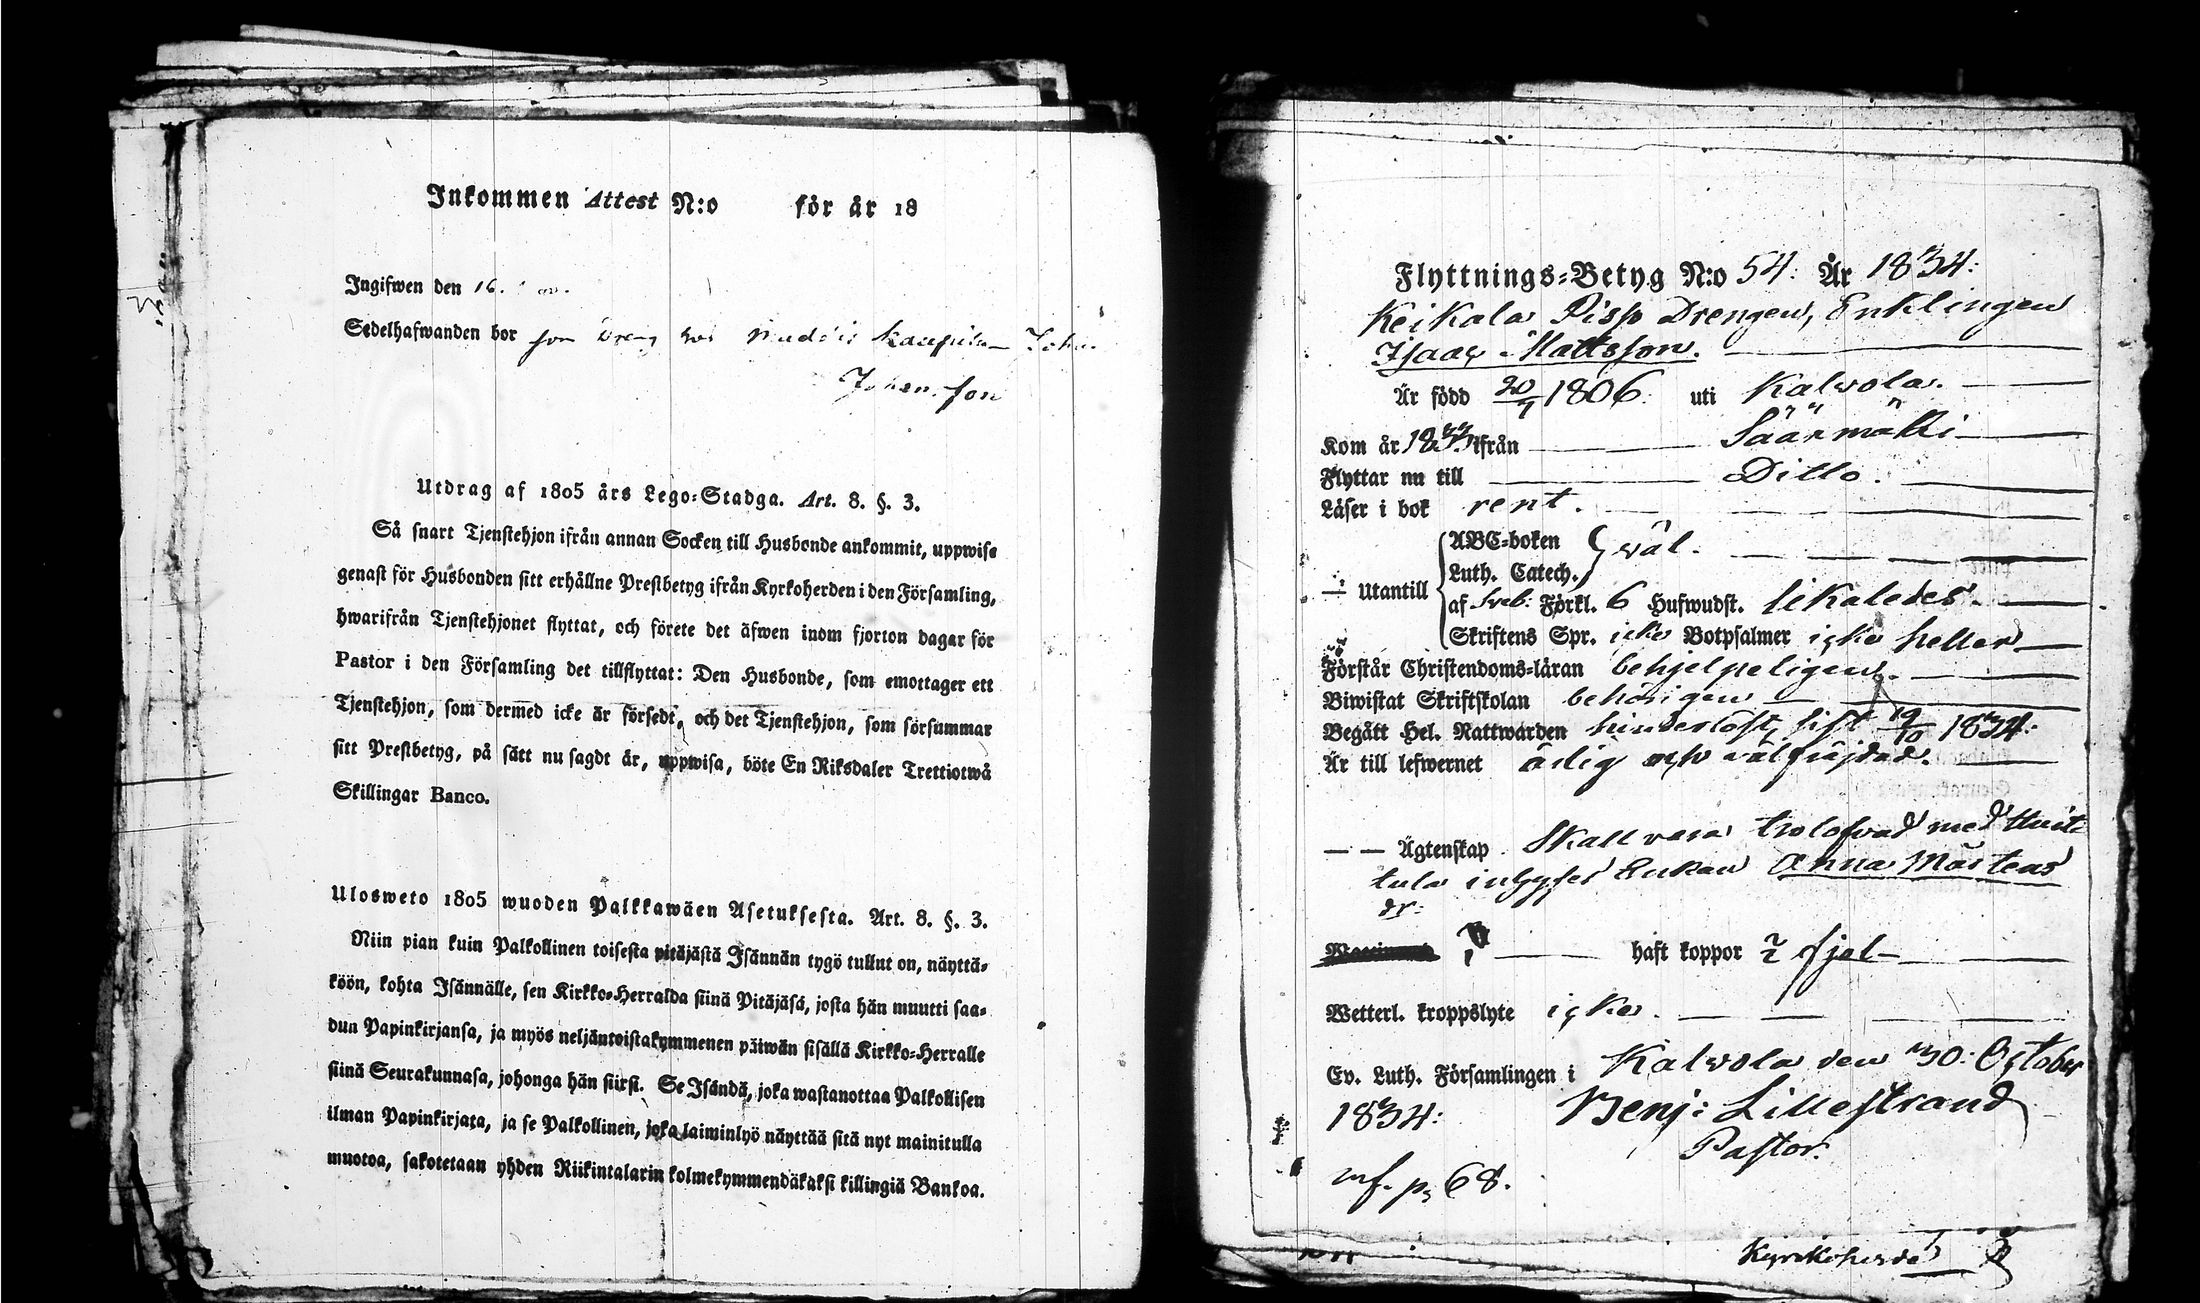 Inkommen Attest N:o för år 18
Ingifwen den 16.
Sedelhafwanden bor som Dreng hos Kaupila Johan
Johansson
Utdrag af 1805 års Lego-Stadga. Art. 8. §. 3.
Så snart Tjenstehjon ifrån annan Socken till Husbonde ankommit, uppwise
genast för Husbonden sitt erhållne Prestbetyg ifrån Kyrkoherden i den Församling,
hwarifrån Tjenstehjonet flyttat, och förete det äfwen inom fjorton dagar för
Pastor i den Församling det tillflyttat: Den Husbonde, som emottager ett
Tjenstehjon, som dermed icke är försedt, och det Tjenstehjon, som försummar
sitt Prestbetyg, på sätt nu sagdt är, uppwisa, böte En Riksdaler Trettiotwå
Skillingar Banco.
Ulosweto 1805 wuoden Palkkawäen Asetuksesta. Art. 8. §. 3.
Niin pian kuin Palkollinen toisesta pitäjästä Isännän tygö tullut on, näyttä-
köön, kohta Isännälle, sen Kirkko-Herralda siinä Pitäjäsä, josta hän muutti saa-
dun Papinkirjansa, ja myös neljäntoistakymmenen päiwän sisällä Kirkko-Herralle
siinä Seurakunnasa, johonga hän siirsi. Se Isändä, joka wastanottaa Palkollisen
ilman Papinkirjata, ja se Palkollinen, joka laiminlyö näyttää sitä nyt mainitulla
muotoa, sakotetaan yhden Riikintalarin kolmekymmendäkaksi killingiä Bankoa.
Flyttnings-Betyg N:o 54: År 1834:
Keikala Pispa Drengen, Enklingen
Isaac Mattsson.
Är född 20/7 1806. uti Kalvola.
Kom år 1833 ifrån Säärmäki
Flyttar nu till Ditto.
Läser i bok rent.
Utantill
ABC-boken
Luth. Catech. väl.
af Sveb: Förkl. 6 Hufwudst. likaledes.
Skriftens Spr. icke Botpsalmer icke heller
Förstår Christendoms-läran behjelpeligen.
Biwistat Skriftskolan behörigen
Begått Hel. Nattwarden hinderlöst, sist 19/10 1834:
Är till lefwernet ärlig och välfräjdad.
Ägtenskap Skall vara trolofvad med Huit
tula inhyses Enkan Anna Mårtens
dr:
haft koppor ? sjel
Wetterl. kroppslyte icke.
Ev. Luth. Församlingen i Kalvola den 30: October
1834: Benj: Lillestrand
Pastor.
mf. p. 68.
Kyrkoherde